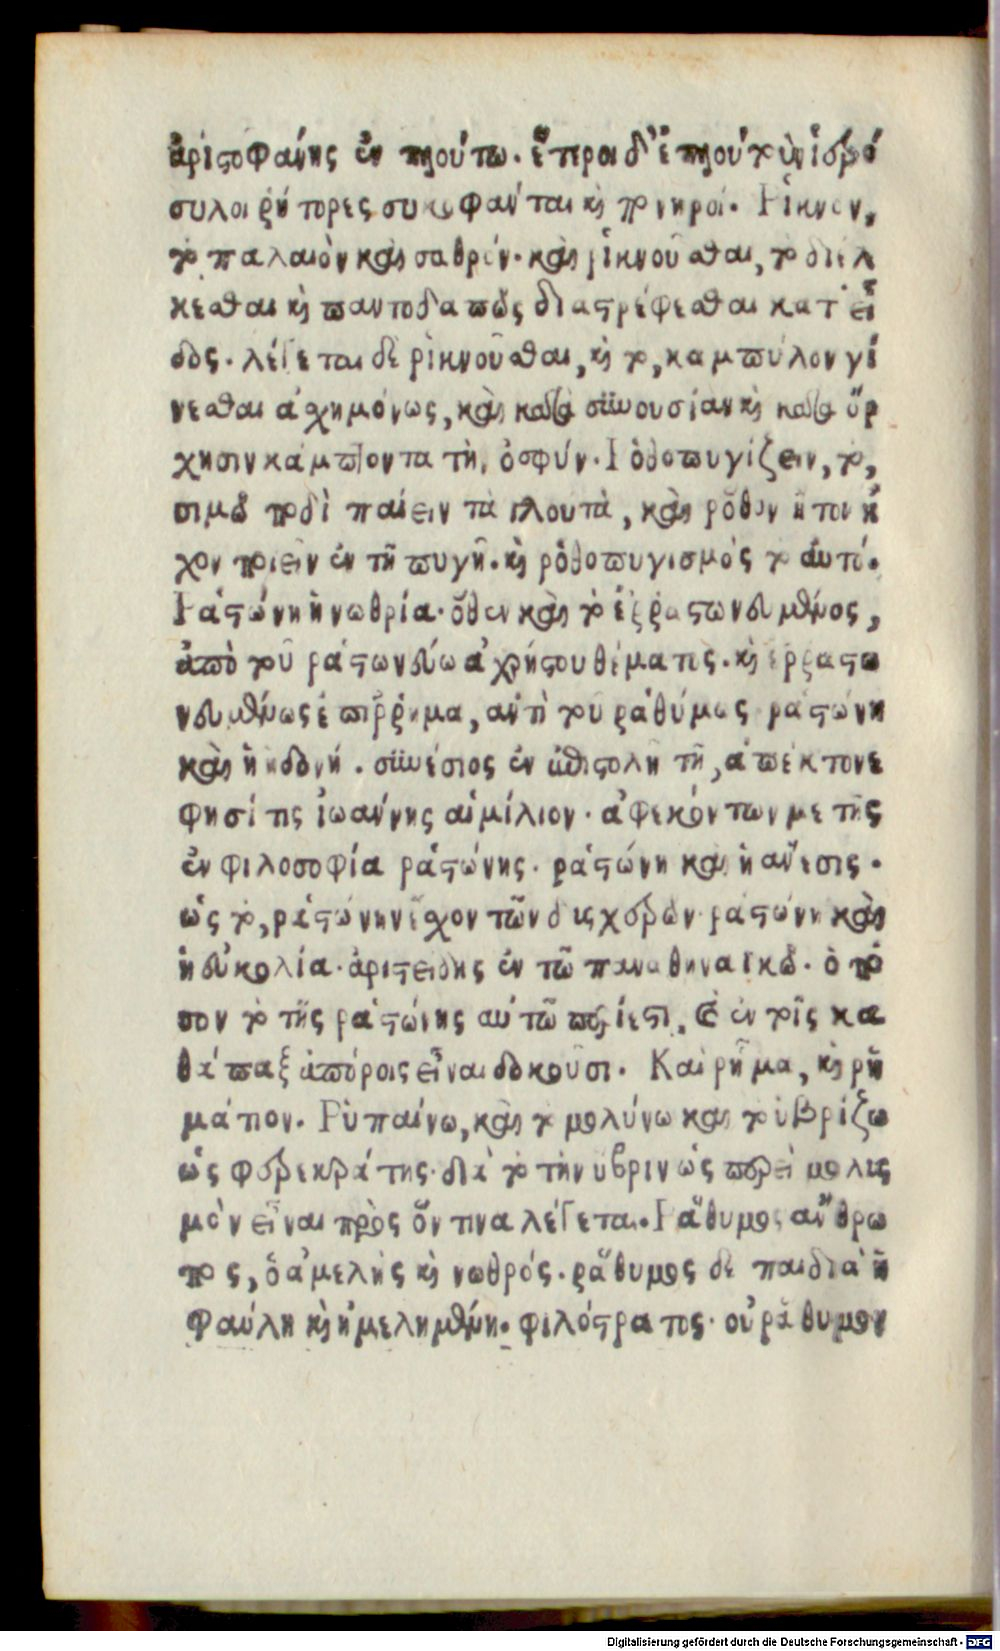 ἀριστοφάνης ἐν πλούτω. ἕτεροι δ' ἐπλούτουν ἱερό
συλοι ῥήτορες συκοφάνται καὶ πονηροί. Ῥικνὸν,
τὸ παλαιὸν καὶ σαθρόν. καὶ ῥικνοῦσθαι, τὸ διέλ
κεσθαι καὶ παντοδαπῶς διαστρέφεσθαι κατ' εἶ
δος. λέγεται δὲ ῥικνοῦσθαι, καὶ τὸ, καμπύλον γί
νεσθαι ἀσχημόνως, καὶ κατὰ συνουσίαν καὶ κατὰ ὄρ
χησιν κάμπτοντα τὴν ὀσφύν. Ῥοθοπυγίζειν, τὸ,
σιμῶ ποδὶ παίειν τὰ γλουτὰ, καὶ ῥόθον ἤτοι ἦ
χον ποιεῖν ἐν τῆ πυγῆ. καὶ ῥοθοπυγισμὸς τὸ αὐτό.
Ῥαστώνη ἡ νωθρία. ὅθεν καὶ τὸ ἐρραστωνευμένος,
ἀπὸ τοῦ ῥαστωνεύω ἀχρήστου θέματος. καὶ ἐρραστω
νευμένως ἐπίρρημα, ἀντὶ τοῦ ῥαθύμως ῥαστώνη
καὶ ἡ ἡδονή. συνέσιος ἐν ἐπιστολῆ τῆ, ἀπέκτονε
φησί τις ἰωάννης αἰμίλιον. ἀφεκόντων με τῆς
ἐν φιλοσοφία ῥαστώνης. ῥαστώνη καὶ ἡ ἄνεσις.
ὡς τὸ, ῥαστώνην εἶχον τῶν δυσχερῶν ῥαστώνη καὶ
ἡ εὐκολία. ἀριστείδης ἐν τῶ παναθηναϊκῶ. ὁ τό
πον τὸ τῆς ῥαστώνης αὐτῶ περίεστι, καὶ ἐν τοῖς κα
θάπαξ ἀπόροις εἶναι δοκοῦσι. Καὶ ῥῆμα, καὶ ῥη
μάτιον. Ῥυπαίνω, καὶ τὸ μολύνω καὶ τὸ ὑβρίζω
ὡς φερεκράτης. διὰ τὸ τὴν ὕβριν ὡς περεὶ μολυς
μὸν εἶναι πρὸς ὅν τινα λέγεται. Ῥάθυμος ἄνθρω
πος, ὁ ἀμελὴς καὶ νωθρός. ῥάθυμος δὲ παιδιὰ ἡ
φαύλη καὶ ἠμελημένη. φιλόστρατος. οὐ ῥάθυμον
Digitalisierung gefördert durch die Deutsche Forschungsgemeinschaft - DFG